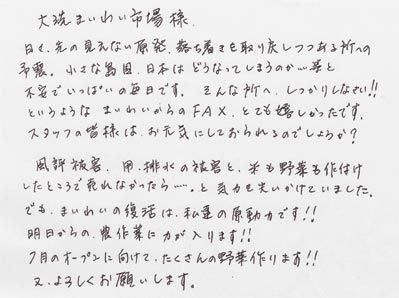 大洗まいわい市場様、
日々、先の見えない原発、落ち着きを取り戻しつつある所への
予震。小さな島国、日本はどうなってしまうのか…等と
不安でいっぱいの毎日です。そんな所へ、しっかりしなさい!!
というような まいわいからのFAX、とても嬉しかったです。
スタッフの皆様は、お元気にしておられるのでしょうか?
風評被害、用・排水の被害と、米も野菜も作付け
したところで売れなかったら……。と気力を失いかけていました。
でも、まいわいの復活は、私達の原動力です!!
明日からの、農作業に力が入ります!!
7月のオープンに向けて、たくさんの野菜作ります!!
又、よろしくお願いします。